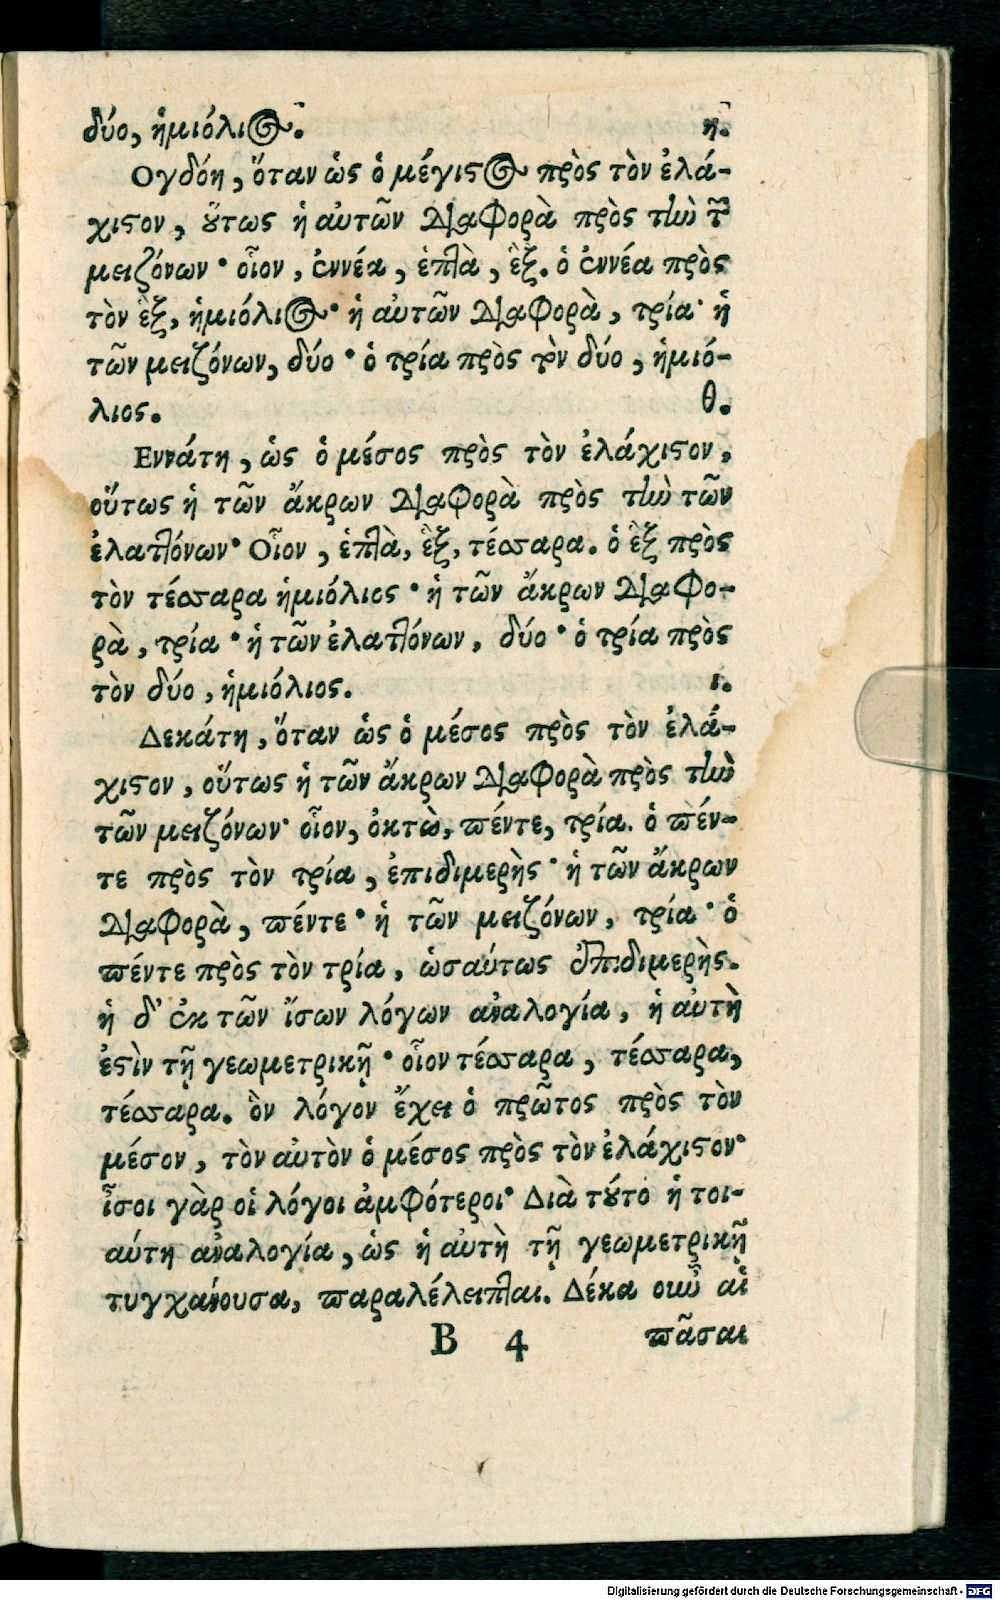 δύο, ἡμιόλιος. η.
Ογδόη, ὅταν ὡς ὁ μέγιστος πρὸς τὸν ἐλά-
χιστον, οὕτως ἡ αὐτῶν διαφορὰ πρὸς τὴν τῶν
μειζόνων· οἷον, ἐννέα, ἑπτὰ, ἓξ. ὁ ἐννέα πρὸς
τὸν ἓξ, ἡμιόλιος· ἡ αὐτῶν διαφορὰ, τρία· ἡ
τῶν μειζόνων, δύο· ὁ τρία πρὸς τὸν δύο, ἡμιό-
λιος. θ.
Εννάτη, ὡς ὁ μέσος πρὸς τὸν ἐλάχιστον,
οὕτως ἡ τῶν ἄκρων διαφορὰ πρὸς τὴν τῶν
ἐλαττόνων· Οἷον, ἑπτὰ, ἓξ, τέσσαρα. ὁ ἓξ πρὸς
τὸν τέσσαρα ἡμιόλιος· ἡ τῶν ἄκρων διαφο-
ρὰ, τρία· ἡ τῶν ἐλαττόνων, δύο· ὁ τρία πρὸς
τὸν δύο, ἡμιόλιος. ι.
Δεκάτη, ὅταν ὡς ὁ μέσος πρὸς τὸν ἐλά-
χιστον, οὕτως ἡ τῶν ἄκρων διαφορὰ πρὸς τὴν
τῶν μειζόνων· οἷον, ὀκτὼ, πέντε, τρία. ὁ πέν-
τε πρὸς τὸν τρία, ἐπιδιμερὴς· ἡ τῶν ἄκρων
διαφορὰ, πέντε· ἡ τῶν μειζόνων, τρία· ὁ
πέντε πρὸς τὸν τρία, ὡσαύτως ἐπιδιμερὴς.
ἡ δ' ἐκ τῶν ἴσων λόγων αναλογία, ἡ αὐτὴ
ἐστὶν τῇ γεωμετρικῇ· οἷον τέσσαρα, τέσσαρα,
τέσσαρα. ὃν λόγον ἔχει ὁ πρῶτος πρὸς τὸν
μέσον, τὸν αὐτὸν ὁ μέσος πρὸς τὸν ἐλάχιστον·
ἶσοι γὰρ οἱ λόγοι ἀμφότεροι· Διὰ τοῦτο ἡ τοι-
αύτη αναλογία, ὡς ἡ αὐτὴ τῇ γεωμετρικῇ
τυγχάνουσα, παραλέλειπται. Δέκα οὖν αἱ
B 4 πᾶσαι
Digitalisierung gefördert durch die Deutsche Forschungsgemeinschaft - DFG